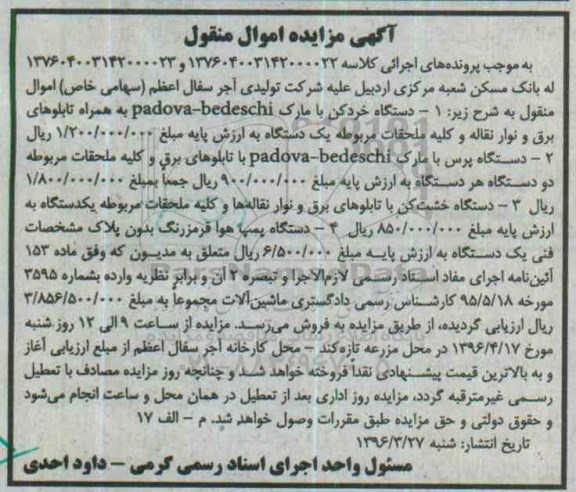 آگهی مزایده اموال منقول
به موجب پرونده‌های اجرائی کلاسه ۱۳۷۶۰۴۰۰۳۱۴۲۰۰۰۰۲۲ و ۱۳۷۶۰۴۰۰۳۱۴۲۰۰۰۰۲۳
له بانک مسکن شعبه مرکزی اردبیل علیه شرکت تولیدی آجر سفال اعظم (سهامی خاص) اموال
منقول به شرح زیر: ۱ – دستگاه خردکن با مارک padova-bedeschi به همراه تابلوهای
برق و نوار نقاله و کلیه ملحقات مربوطه یک دستگاه به ارزش پایه مبلغ ۱/۲۰۰/۰۰۰/۰۰۰ ریال
۲ – دستگاه پرس با مارک padova-bedeschi با تابلوهای برق و کلیه ملحقات مربوطه
دو دستگاه هر دستگاه به ارزش پایه مبلغ ۹۰۰/۰۰۰/۰۰۰ ریال جمعاً بمبلغ ۱/۸۰۰/۰۰۰/۰۰۰
ریال ۳ – دستگاه خشت‌کن با تابلوهای برق و نوار نقاله‌ها و کلیه ملحقات مربوطه یکدستگاه به
ارزش پایه مبلغ ۸۵۰/۰۰۰/۰۰۰ ریال ۴ – دستگاه پمپ هوا قرمزرنگ بدون پلاک مشخصات
فنی یک دستگاه به ارزش پایه مبلغ ۶/۵۰۰/۰۰۰ ریال متعلق به مدیون که وفق ماده ۱۵۳
آئین‌نامه اجرای مفاد اسناد رسمی لازم‌الاجرا و تبصره ۲ آن و برابر نظریه وارده بشماره ۳۵۹۵
مورخه ۹۵/۵/۱۸ کارشناس رسمی دادگستری ماشین‌آلات مجموعاً به مبلغ ۳/۸۵۶/۵۰۰/۰۰۰
ریال ارزیابی گردیده، از طریق مزایده به فروش می‌رسد. مزایده از ساعت ۹ الی ۱۲ روز شنبه
مورخ ۱۳۹۶/۴/۱۷ در محل مزرعه تازه‌کند – محل کارخانه آجر سفال اعظم از مبلغ ارزیابی آغاز
و به بالاترین قیمت پیشنهادی نقداً فروخته خواهد شد و چنانچه روز مزایده مصادف با تعطیل
رسمی غیرمترقبه گردد، مزایده روز اداری بعد از تعطیل در همان محل و ساعت انجام می‌شود
و حقوق دولتی و حق مزایده طبق مقررات وصول خواهد شد. م – الف ۱۷
تاریخ انتشار: شنبه ۱۳۹۶/۳/۲۷
مسئول واحد اجرای اسناد رسمی گرمی – داود احدی